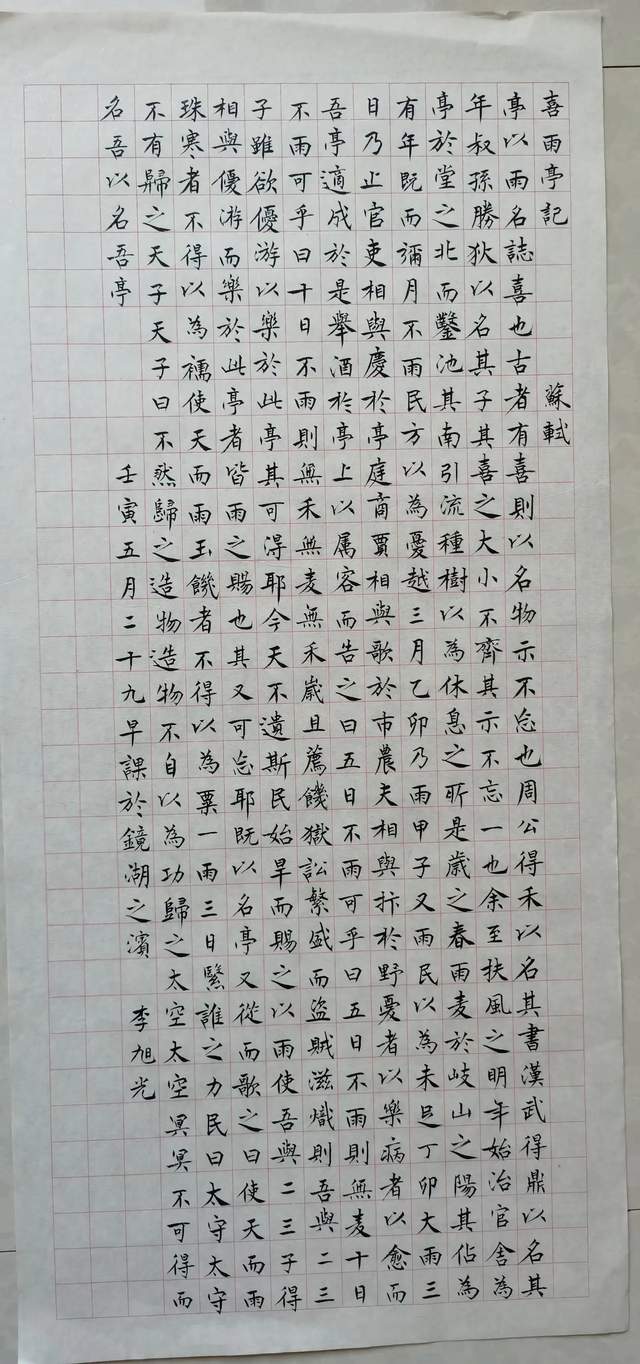 喜雨亭記 蘇軾
亭以雨名誌喜也古者有喜則以名物示不忘也周公得禾以名其書漢武得鼎以名其
年叔孫勝狄以名其子其喜之大小不齊其示不忘一也余至扶風之明年始治官舍為
亭於堂之北而鑿池其南引流種樹以為休息之所是歲之春雨麦於岐山之陽其佔為
有年既而彌月不雨民方以為憂越三月乙卯乃雨甲子又雨民以為未足丁卯大雨三
日乃止官吏相與慶於亭庭商賈相與歌於市農夫相與抃於野憂者以樂病者以愈而
吾亭適成於是舉酒於亭上以属客而告之曰五日不雨可乎曰五日不雨則無麦十日
不雨可乎曰十日不雨則無禾無麦無禾歲且薦饑獄訟繁盛而盜賊滋熾則吾與二三
子雖欲優游以樂於此亭其可得耶今天不遺斯民始旱而賜之以雨使吾與二三子得
相與優游而樂於此亭者皆雨之賜也其又可忘耶既以名亭又從而歌之曰使天而雨
珠寒者不得以為襦使天而雨玉饑者不得以為粟一雨三日繄誰之力民曰太守太守
不有歸之天子天子曰不然歸之造物造物不自以為功歸之太空太空冥冥不可得而
名吾以名吾亭 壬寅五月二十九早課於鏡湖之濱 李旭光